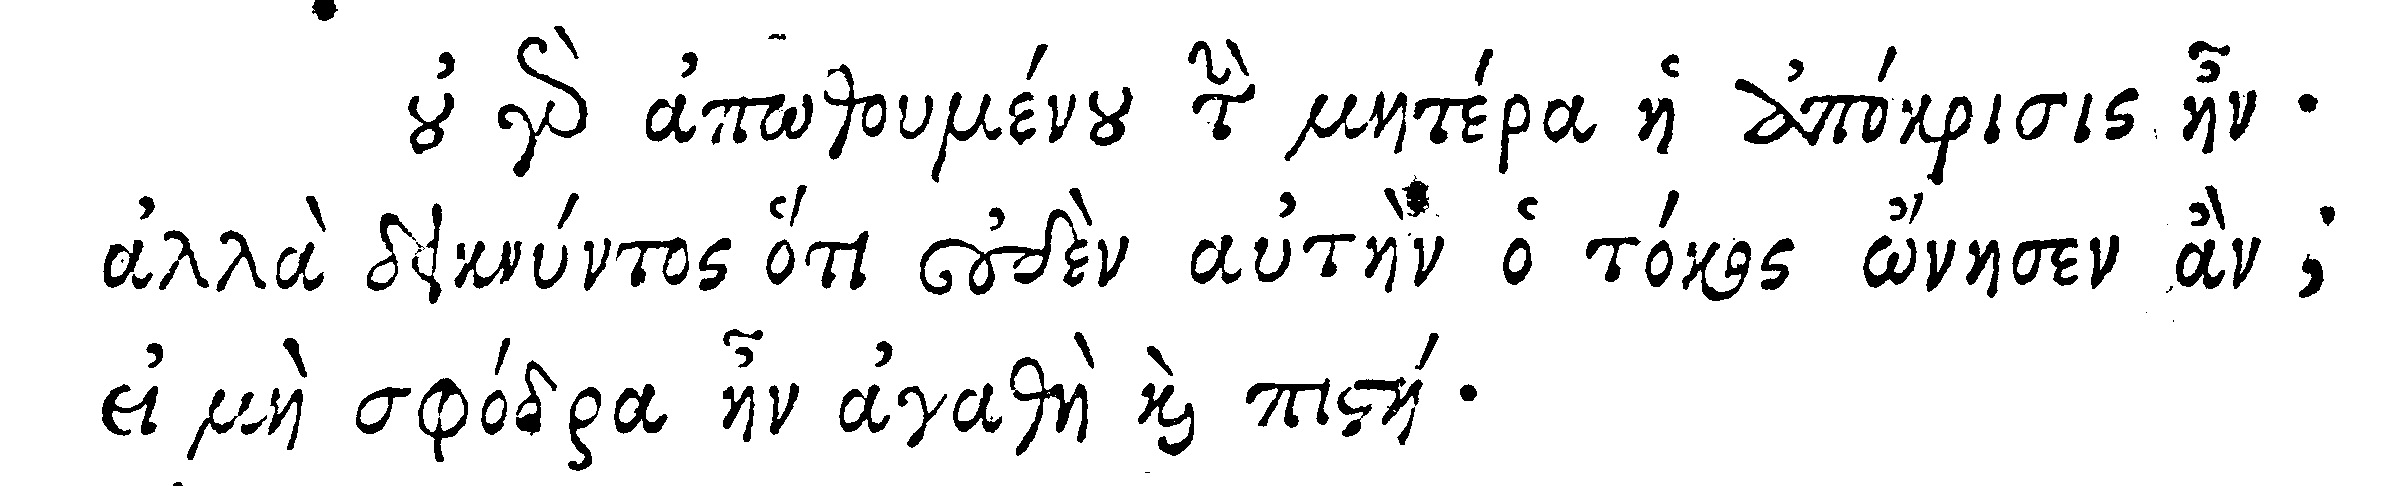 οὐ γὰρ ἀπωθουμένου τὴν μητέρα ἡ ἀπόκρισις ἦν·
ἀλλὰ δεικνύντος ὅτι οὐδὲν αὐτὴν ὁ τόκος ὤνησεν ἂν;
εἰ μὴ σφόδρα ἦν ἀγαθὴ καὶ πιστή·